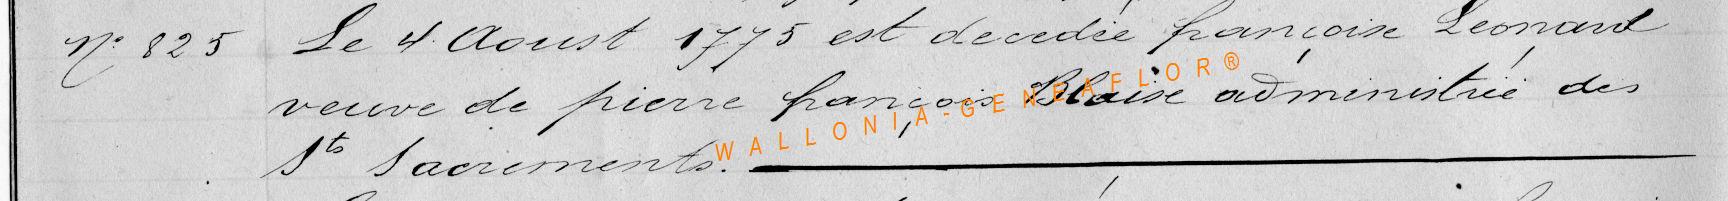 N° 825 Le 4 Aoust 1775 est decedée françoise Leonard
veuve de pierre françois Blaise administrée des
Sts Sacrements.
WALLONIA-GENEAFLOR®